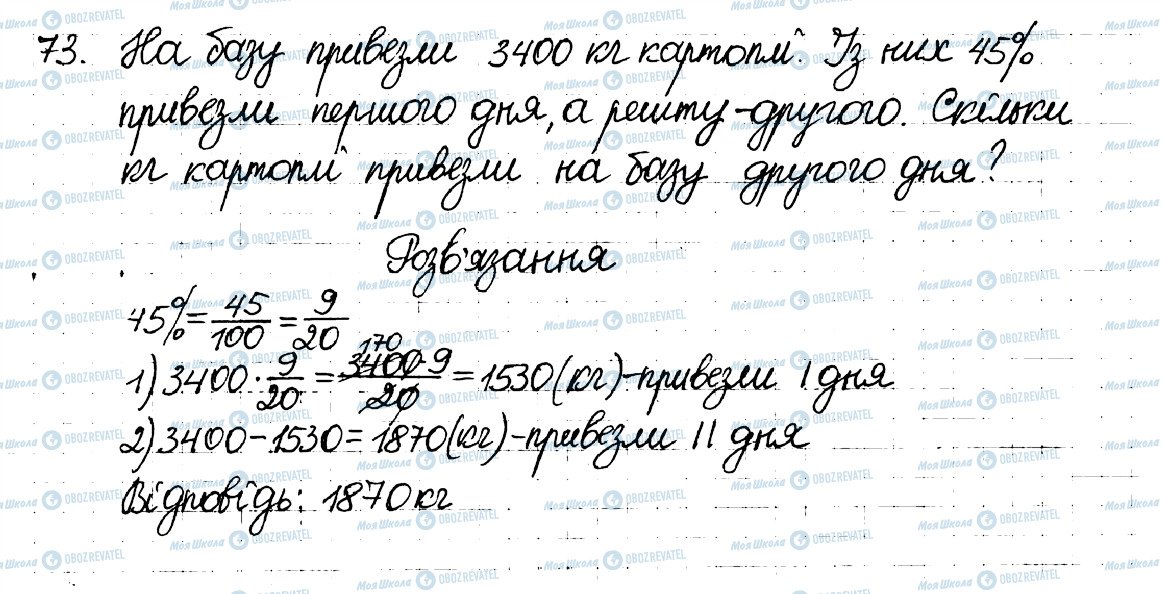 73. На базу привезли 3400 кг картоплі. Із них 45%
привезли першого дня, а решту - другого. Скільки
кг картоплі привезли на базу другого дня?
Розв'язання
45% = 45/100 = 9/20
1) 3400 · 9/20 = 3400 170 · 9/20 = 1530 (кг) - привезли I дня
2) 3400 - 1530 = 1870 (кг) - привезли II дня
Відповідь: 1870 кг